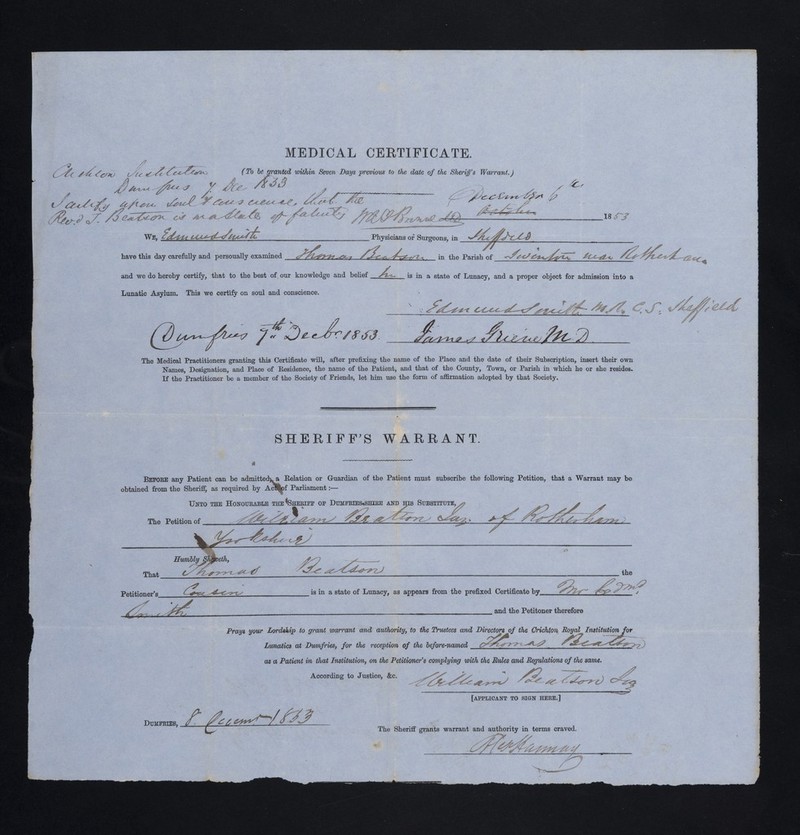 MEDICAL CERTIFICATE.
(To be granted within Seven Days previous to the date of the Sheriff's Warrant.)
Crichton Institution
Dumfries 7 Dec 1853
I certify upon soul & conscience, that the
Revd T. Beatson is in a state of fatuity
December 6th
October 1853
WE, Edmund Smith Physicians or Surgeons, in Sheffield
have this day carefully and personally examined Thomas Beatson in the Parish of Swinton near Rotherham
and we do hereby certify, that to the best of our knowledge and belief he is in a state of Lunacy, and a proper object for admission into a
Lunatic Asylum. This we certify on soul and conscience.
Edmund Smith M.R.C.S. Sheffield
Dumfries 7th Decbr 1853. James Grieve M.D.
The Medical Practitioners granting this Certificate will, after prefixing the name of the Place and the date of their Subscription, insert their own
Names, Designation, and Place of Residence, the name of the Patient, and that of the County, Town, or Parish in which he or she resides.
If the Practitioner be a member of the Society of Friends, let him use the form of affirmation adopted by that Society.
SHERIFF'S WARRANT.
BEFORE any Patient can be admitted, a Relation or Guardian of the Patient must subscribe the following Petition, that a Warrant may be
obtained from the Sheriff, as required by Act of Parliament:—
UNTO THE HONOURABLE THE SHERIFF OF DUMFRIES-SHIRE AND HIS SUBSTITUTE,
The Petition of William Beatson Esq. of Rotherham
Yorkshire
Humbly Sheweth,
That Thomas Beatson the
Petitioner's Cousin is in a state of Lunacy, as appears from the prefixed Certificate by Mr Edmd
Smith and the Petitoner therefore
Prays your Lordship to grant warrant and authority, to the Trustees and Directors of the Crichton Royal Institution for
Lunatics at Dumfries, for the reception of the before-named Thomas Beatson
as a Patient in that Institution, on the Petitioner's complying with the Rules and Regulations of the same.
According to Justice, &c. William Beatson Esq
[APPLICANT TO SIGN HERE.]
DUMFRIES, 8 December 1853
The Sheriff grants warrant and authority in terms craved.
Hannay